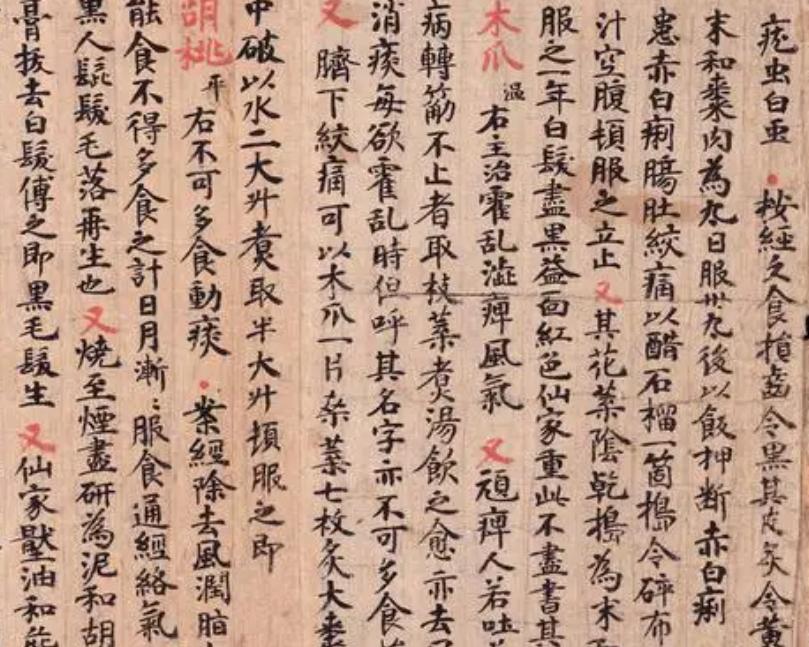 疣虫白虫 ・桉經久食損齒令黒其皮炙令黄
末和棗肉為丸日服卅丸後以飯押断赤白痢
患赤白痢腸肚絞痛以醋石榴一箇搗令碎布
汁空腹頓服之立止 又其花葉陰乾搗為末
服之一年白髮盡黒益面紅色仙家重此不盡書其
木瓜 温 右主治霍乱澁痺風氣 又頑痺人若吐
病轉筋不止者取枝葉煮湯飲之愈亦去
消痰每欲霍乱時但呼其名字亦不可多食
又 臍下絞痛可以木瓜一片桒葉七枚炙大棗
中破以水二大升煮取半大升頓服之即
胡桃 平 右不可多食動痰 ・案經除去風潤脂
能食不得多食之計日月漸ミ服食通經絡氣
黒人髭髮毛落再生也 又燒至煙盡研為泥和胡
膏拔去白髮傅之即黒毛髮生 又仙家壓油和